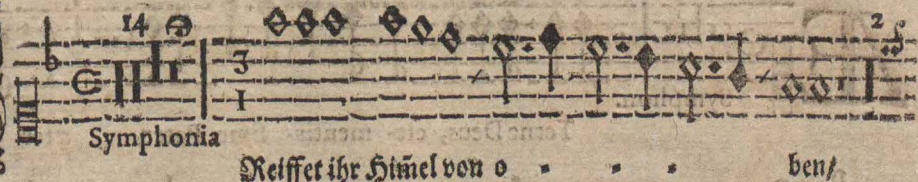 14
2
3
1
Symphonia
Reiffet ihr Him̃el von o - - - ben/